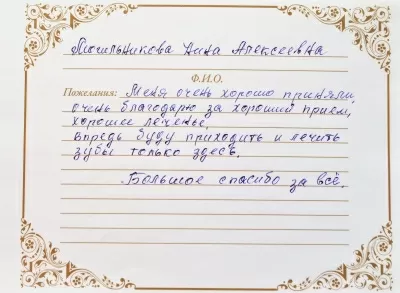 Пигильникова Нина Алексеевна
Ф.И.О.
Пожелания: Меня очень хорошо приняли,
очень благодарю за хороший прием,
хорошее леченье.
Впредь буду приходить и лечить
зубы только здесь.
Большое спасибо за всё.